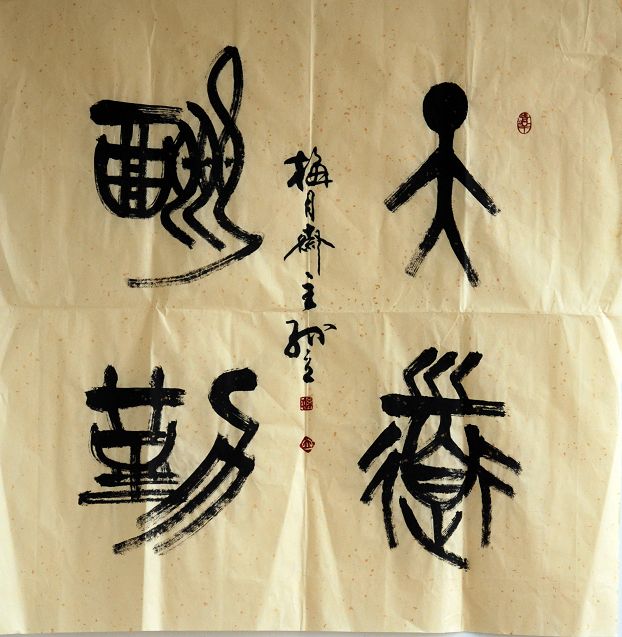 天道
酬勤
梅月斋主